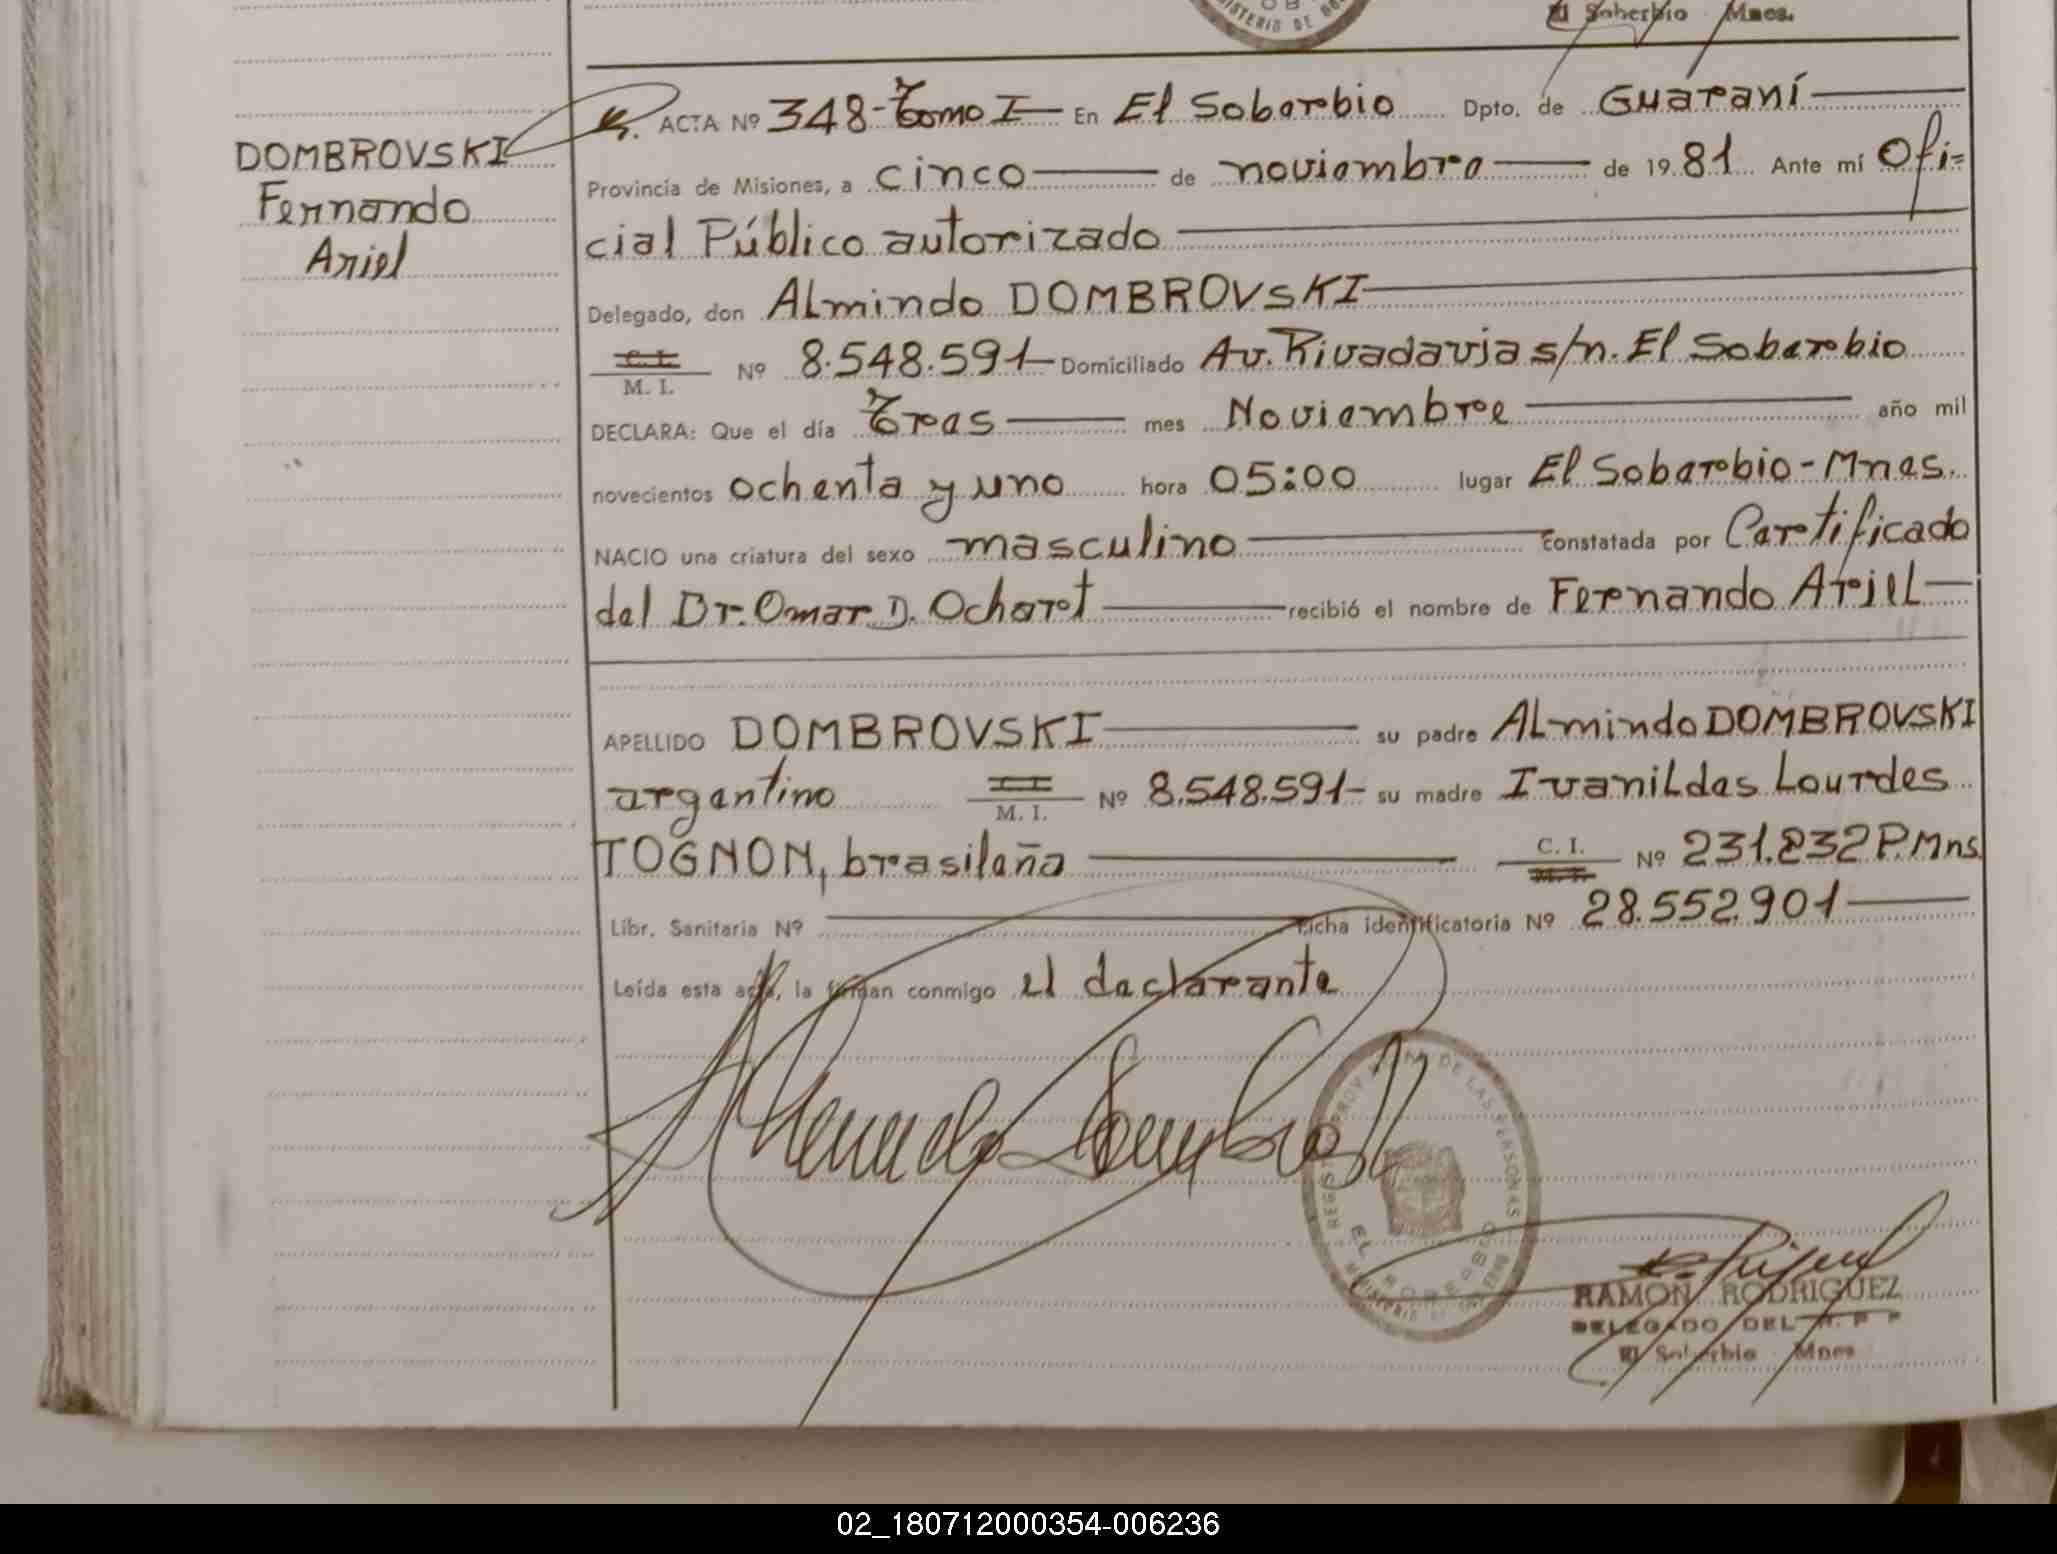 El Soberbio Mnes.
ACTA Nº 348-Tomo I En El Soberbio Dpto. de Guaraní
DOMBROVSKI
Fernando
Ariel
Provincia de Misiones, a cinco de noviembre de 19 81 Ante mí Ofi=
cial Público autorizado
Delegado, don Almindo DOMBROVSKI
C. I.
M. I. Nº 8.548.591 Domiciliado Av. Rivadavia s/n. El Soberbio
DECLARA: Que el día Tres mes Noviembre año mil
novecientos ochenta y uno hora 05:00 lugar El Soberbio-Mnes.
NACIO una criatura del sexo masculino constatada por Certificado
del Dr. Omar D. Ocharet recibió el nombre de Fernando Ariel
APELLIDO DOMBROVSKI su padre Almindo DOMBROVSKI
argentino M. I. Nº 8.548.591- su madre Ivanildes Lourdes
TOGNON, brasileña C. I. Nº 231.232 P. Mns.
Libr. Sanitaria Nº Ficha identificatoria Nº 28.552.901
Leída esta acta, la firman conmigo el declarante
RAMON RODRIGUEZ
DELEGADO DEL R. P. P
El Soberbio Mnes
02_180712000354-006236